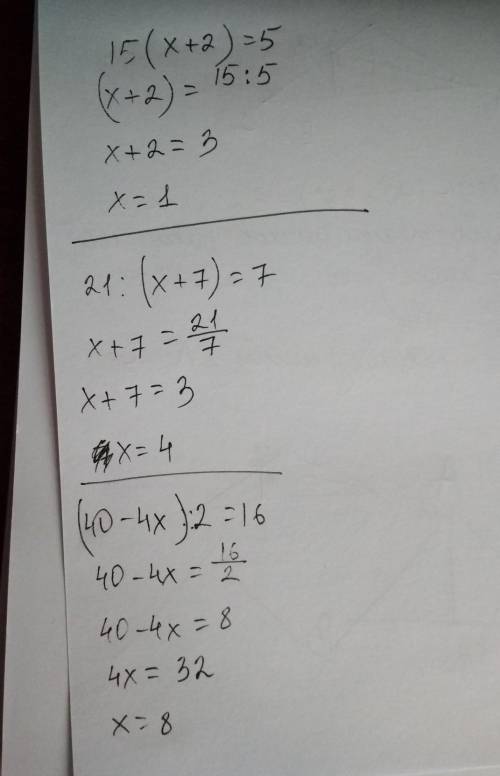 15(x+2)=5
(x+2)= 15:5
x+2=3
x=1
21:(x+7)=7
x+7=21/7
x+7=3
x=4
(40-4x):2=16
40-4x=16/2
40-4x=8
4x=32
x=8